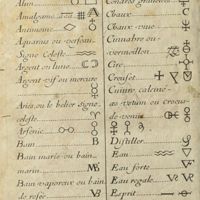 Alun
Amalgame. aaa
Antimoine
Aquarius ou verseau
Signe Celeste
Argent ou lune
Argent vif ou mercure
Aries, ou le belier signe
celeste
Arsenic
Bain B
Bain marie ou bain
marin MB
Bain vaporeux ou bain
de rosée VB
Chaux
Chaux vive
Cinnabre ou
vermeillon
Cire
Creuset
Cuivre calciné
æs ustum ou crocus
de venus
Distiller
Eau
Eau forte
Eau regale
Esprit